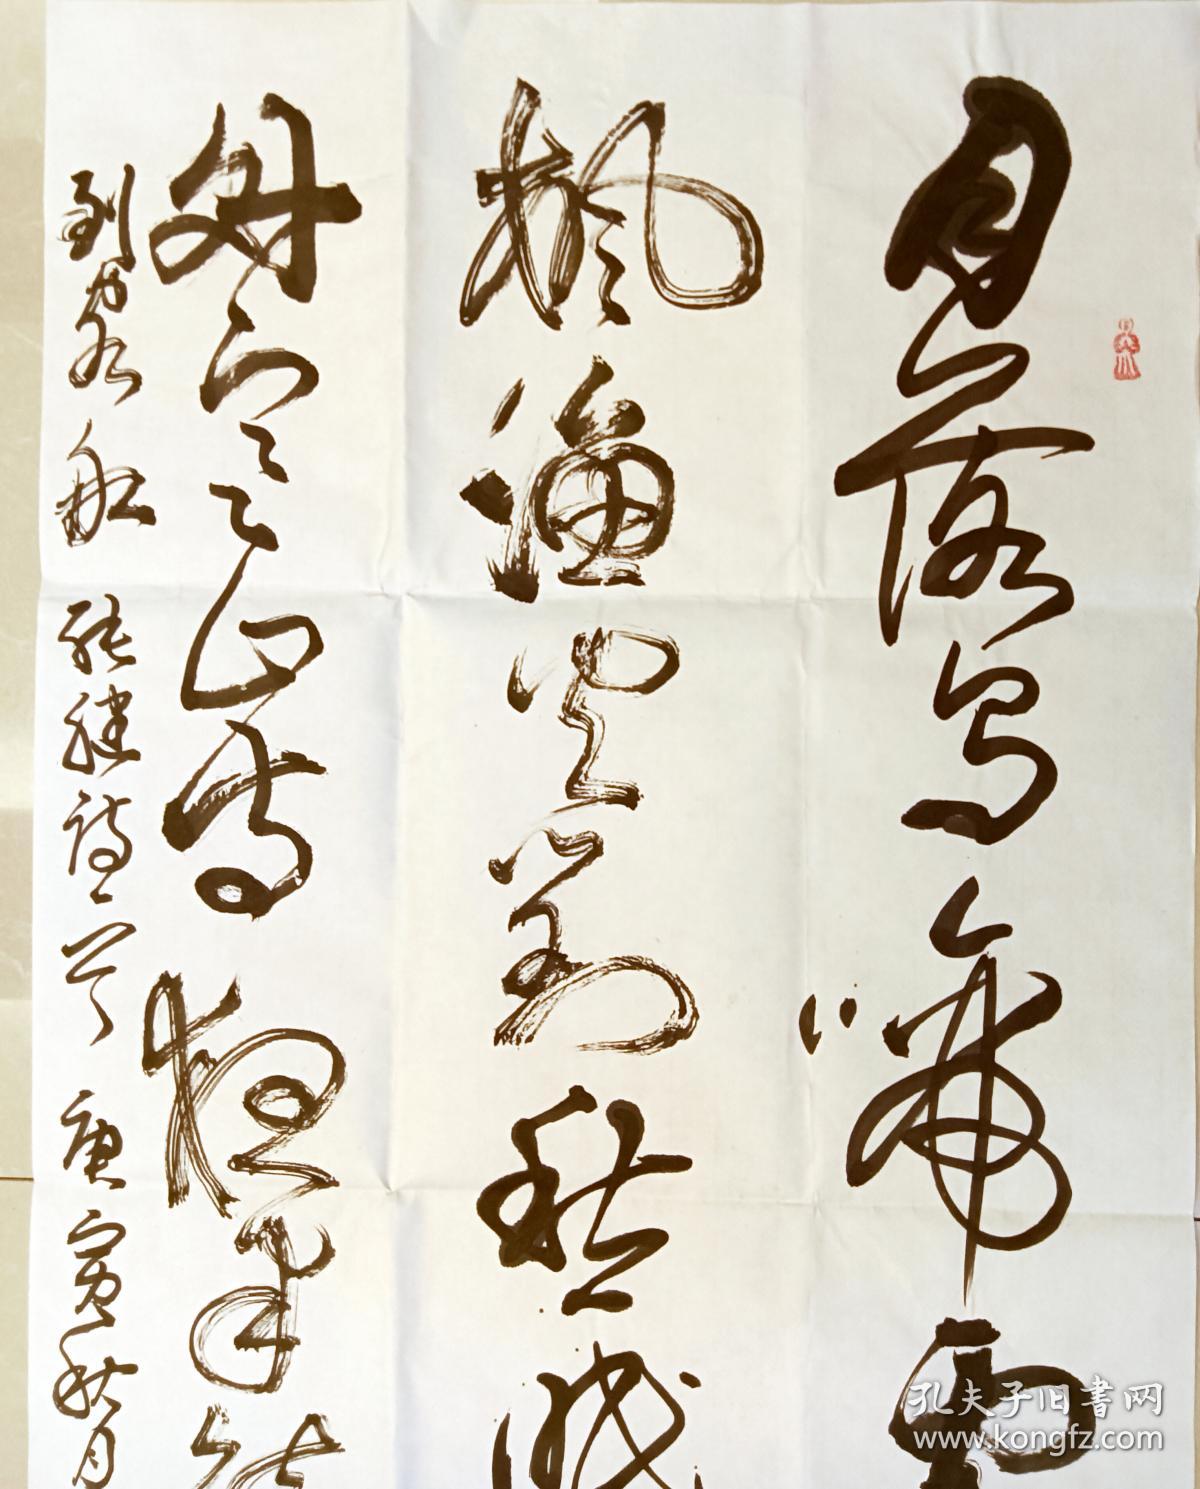 月落乌啼霜
枫渔火对愁眠
外寒山寺夜半钟
到客船 张继诗一首 庚寅秋月
孔夫子旧书网
www.kongfz.com